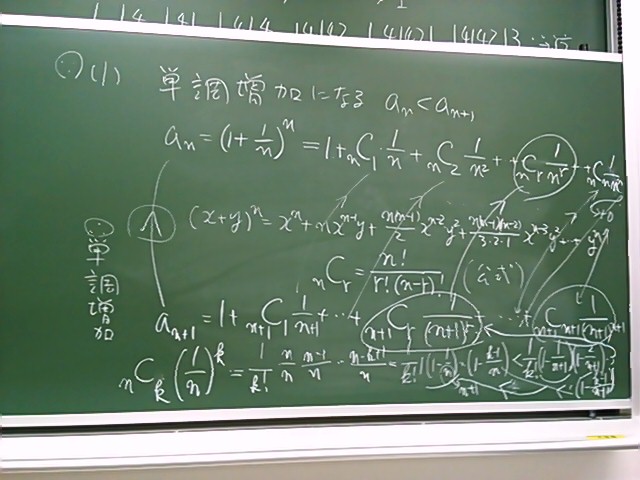 1 1.4 1.41 1.414 1.4142 1.41421 1.414213
∵)(1) 単調増加になる aₙ < aₙ₊₁
aₙ = (1 + 1/n)ⁿ = 1 + ₙC₁ 1/n + ₙC₂ 1/n² + ‥ + ₙCᵣ 1/nʳ + ‥ + ₙCₙ 1/nⁿ
(x+y)ⁿ = xⁿ + n xⁿ⁻¹y + n(n-1)/2 xⁿ⁻²y² + n(n-1)(n-2)/3·2·1 xⁿ⁻³y³ ‥ + yⁿ
ₙCᵣ = n!/r!(n-r)!
∵ 単調増加
aₙ₊₁ = 1 + ₙ₊₁C₁ 1/n+1 + ‥ + ₙ₊₁Cᵣ 1/(n+1)ʳ + ‥ + ₙ₊₁Cₙ₊₁ 1/(n+1)ⁿ⁺¹
ₙCₖ (1/n)ᵏ = 1/k! n/n n-1/n ‥ n-k+1/n = 1/k! 1(1-1/n)‥(1-k-1/n) < 1/k! (1-1/n+1)